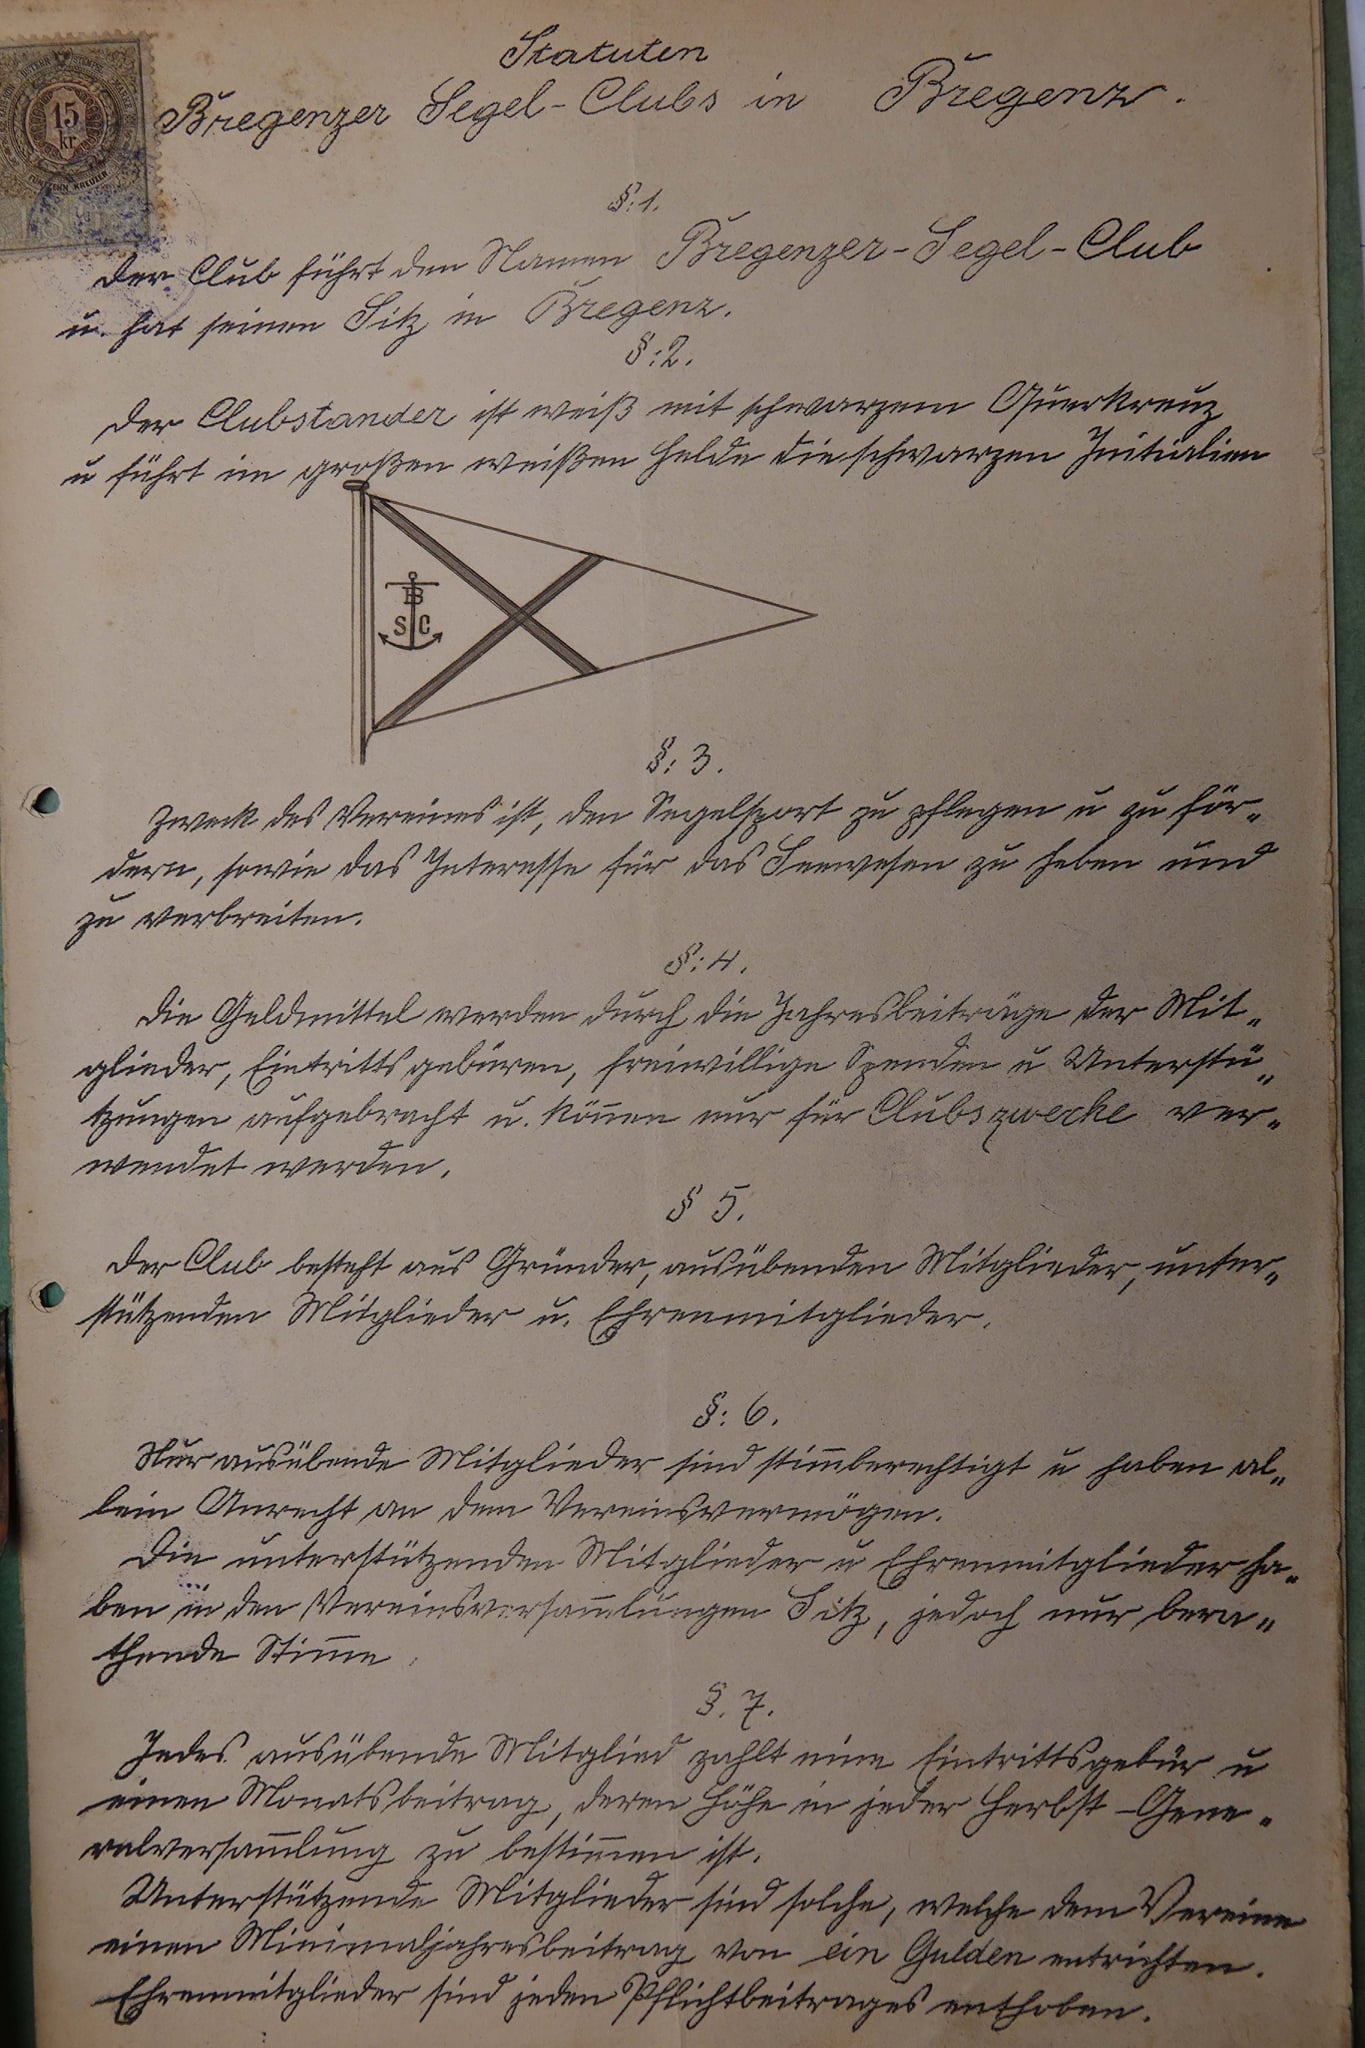 Statuten
Bregenzer Segel-Clubs in Bregenz.
15
kr
FÜNFZEHN KREUZER
§:1.
Der Club führt den Namen Bregenzer-Segel-Club
u. hat seinen Sitz in Bregenz.
§:2.
Der Clubstander ist weiß mit schwarzem Querkreuz
u führt im großen weißen Felde die schwarzen Initialien
B
S C
§: 3.
Zweck des Vereines ist, den Segelsport zu pflegen u zu för-
dern, sowie das Interesse für das Seewesen zu heben und
zu verbreiten.
§:4.
Die Geldmittel werden durch die Jahresbeiträge der Mit-
glieder, Eintrittsgebüren, freiwillige Spenden u Unterstü-
tzungen aufgebracht u. kön̅en nur für Clubszwecke ver-
wendet werden.
§ 5.
Der Club besteht aus Gründer, ausübenden Mitglieder, unter-
stützenden Mitglieder u. Ehrenmitglieder.
§: 6.
Nur ausübende Mitglieder sind stim̅berechtigt u haben al-
lein Anrecht an dem Vereinsvermögen.
Die unterstützenden Mitglieder u Ehrenmitglieder ha-
ben in den Vereinsversam̅lungen Sitz, jedoch nur bera-
thende Stim̅e.
§. 7.
Jedes ausübende Mitglied zahlt eine Eintrittsgebür u
einen Monatsbeitrag, deren Höhe in jeder Herbst-Gene-
ralversam̅lung zu bestim̅en ist.
Unterstützende Mitglieder sind solche, welche dem Vereine
einen Minimaljahresbeitrag von ein Gulden entrichten.
Ehrenmitglieder sind jeden Pflichtbeitrages enthoben.